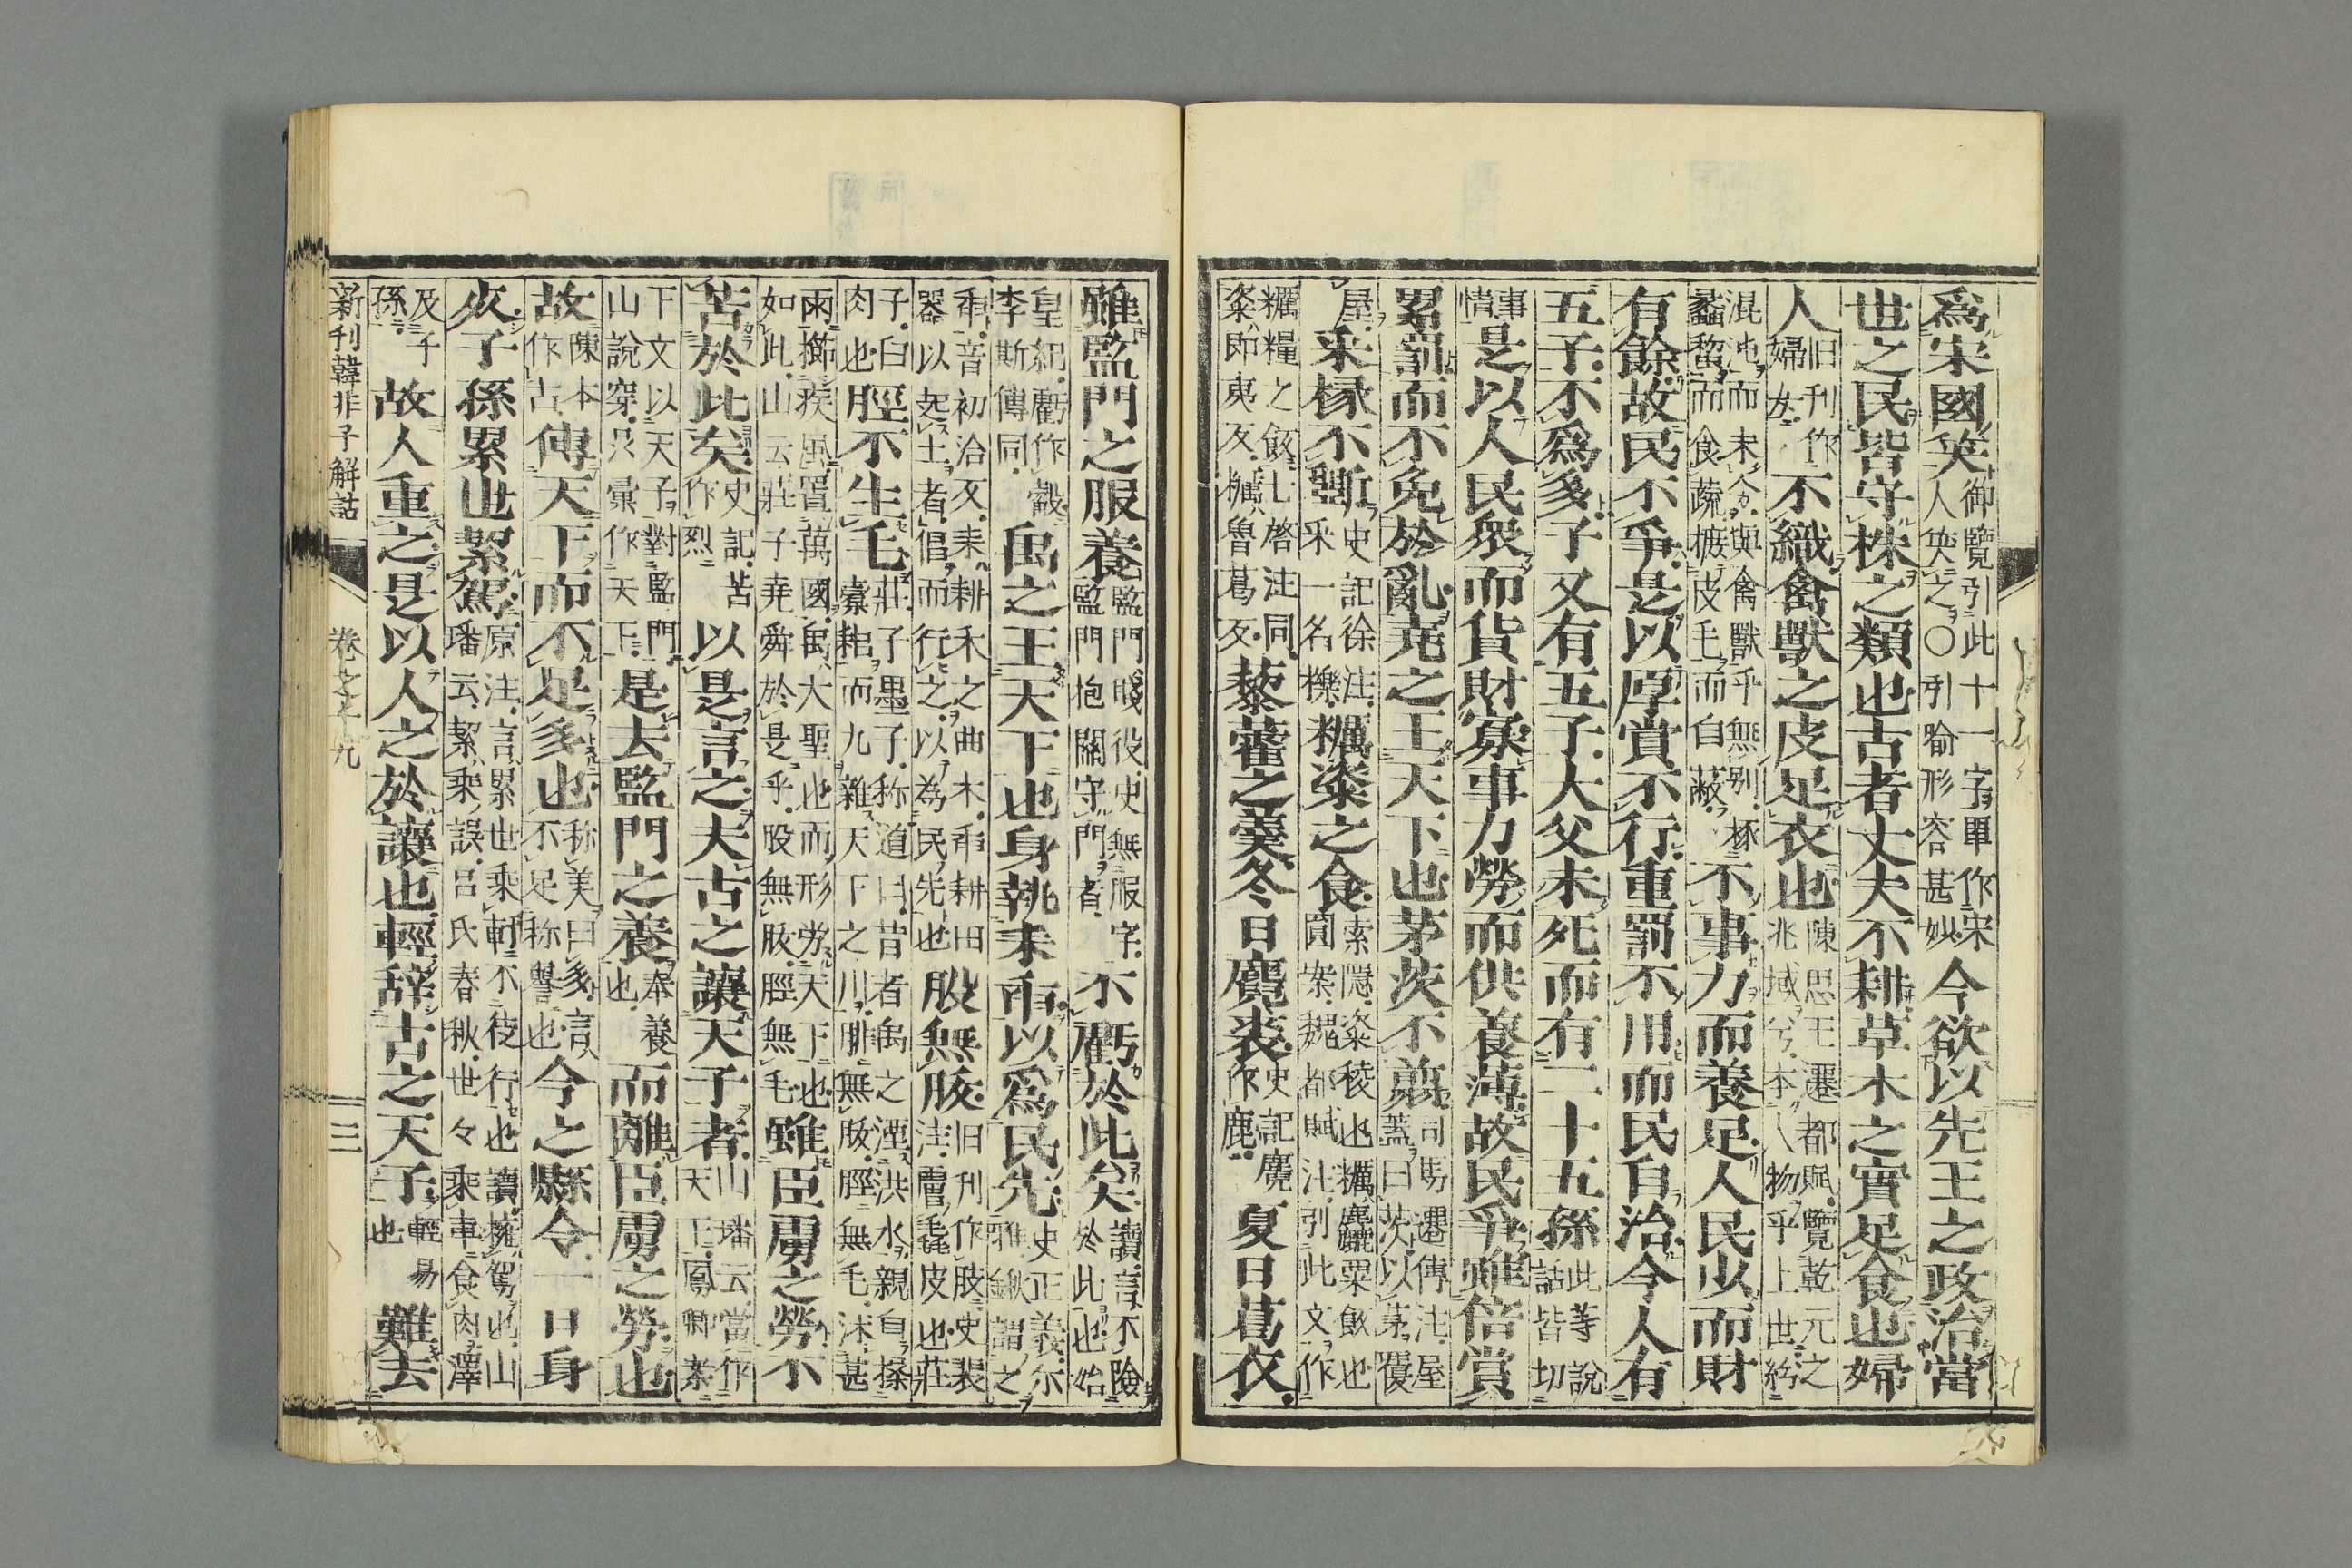 爲宋國笑御覽引此十一字單作宋人笑之○引喻形容甚妙今欲以先王之政治當
世之民皆守株之類也古者丈夫不耕草木之實足食也婦
人旧刊作婦女不織禽獸之皮足衣也陳思王遷都賦覽乾元之兆域兮本人物乎上世紛
混沌而未分與禽獸乎無別椓蠡蜊而食蔬摭皮毛而自蔽不事力而養足人民少而財
有餘故民不爭是以厚賞不行重罰不用而民自治今人有
五子不爲多子又有五子大父未死而有二十五孫此等說話皆切
事情是以人民衆而貨財寡事力勞而供養薄故民爭雖倍賞
累罰而不免於亂堯之王天下也茅茨不翦司馬遷傳注屋蓋曰茨以茅覆
屋采椽不斲史記徐注采一名櫟糲粢之食索隱粢稜也糲麤粟飯也圓案魏都賦注引此文作
糲糧之飯七啓注同粢即夷反糲魯葛反藜藿之羹冬日麑裘史記麑作鹿夏日葛衣
雖監門之服養監門賤役史無服字監門抱關守門者不虧於此矣讀言不險於此也始
皇紀虧作觳李斯傳同禹之王天下也身執耒臿以爲民先史正義尔雅鍬謂之
臿音初洽反耒耕禾之曲木臿耕田器以起土者倡而行之以為民先也股無胈旧刊作肢史裴注胈毳皮也莊
子白肉也脛不生毛莊子墨子称道曰昔者禹之湮洪水親自操橐耜而九雜天下之川腓無胈脛無毛沐甚
雨櫛疾風置萬國禹大聖也而形勞天下也如此山云莊子堯舜於是乎股無胈脛無毛雖臣虜之勞不
苦於此矣史記苦作烈以是言之夫古之讓天子者山璠云當作天下鳳卿案
下文以天子對監門山說穿只彙作天下是去監門之養奉養也而離臣虜之勞也
故陳本作古傳天下而不足多也称美曰多言不足称譽也今之縣令一日身
死子孫累世絜駕原注言累世乘軒不徒行也讀擁駕也山璠云絜乘誤呂氏春秋世々乘車食肉澤
及子孫故人重之是以人之於讓也輕辭古之天子輕易也難去
新刊韓非子解詁
卷之十九
三